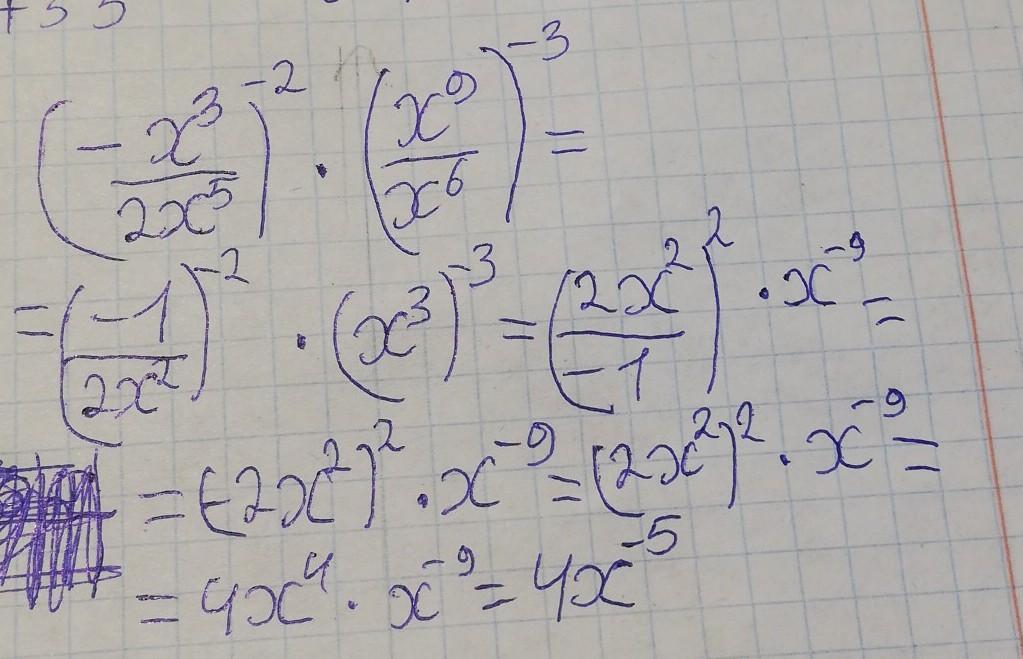 (-x³/2x⁵)⁻² · (x⁹/x⁶)⁻³ =
= (-1/2x²)⁻² · (x³)⁻³ = (2x²/-1)² · x⁻⁹ =
= (-2x²)² · x⁻⁹ = (2x²)² · x⁻⁹ =
= 4x⁴ · x⁻⁹ = 4x⁻⁵